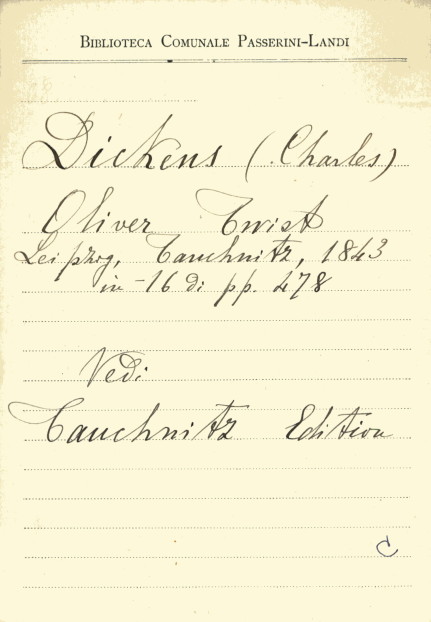 BIBLIOTECA COMUNALE PASSERINI-LANDI
Dickens (Charles)
Oliver Twist
Leipzig, Tauchnitz, 1843
in-16 di pp. 478
Vedi
Tauchnitz Edition
C